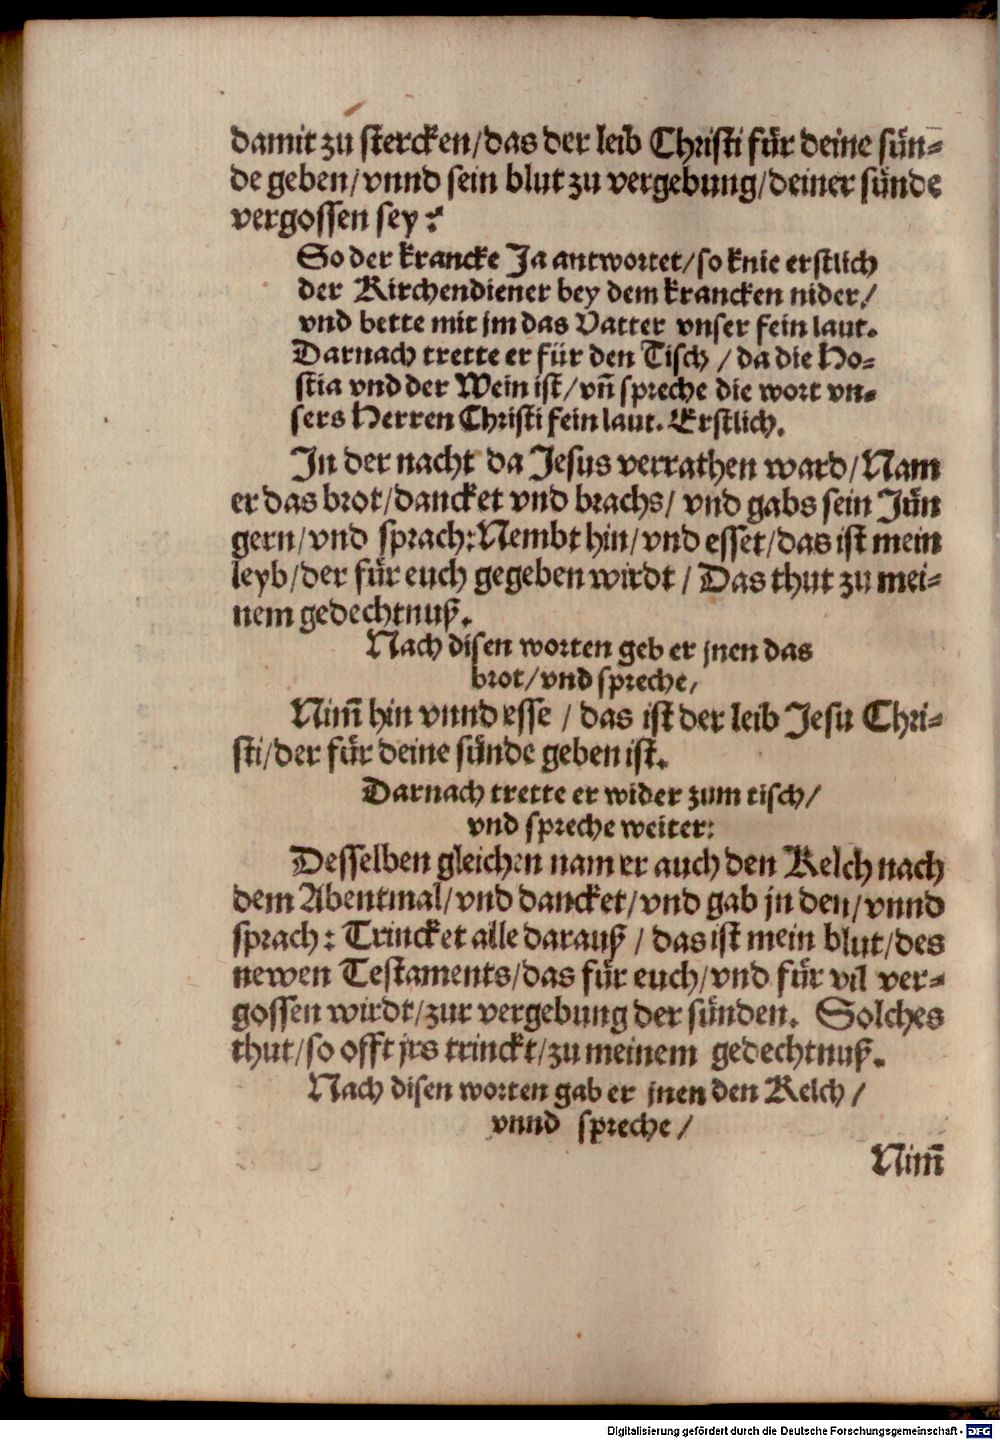 damit zu stercken/das der leib Christi für deine sün-
de geben/vnnd sein blut zu vergebung/deiner sünde
vergossen sey?
So der krancke Ja antwortet/so knie erstlich
der Kirchendiener bey dem krancken nider/
vnd bette mit jm das Vatter vnser fein laut.
Darnach trette er für den Tisch / da die Ho-
stia vnd der Wein ist/vn̄ spreche die wort vn-
sers Herren Christi fein laut. Erstlich.
In der nacht da Jesus verrathen ward/Nam
er das brot/dancket vnd brachs/ vnd gabs sein Jün
gern/vnd sprach:Nembt hin/vnd esset/das ist mein
leyb/der für euch gegeben wirdt / Das thut zu mei-
nem gedechtnuß.
Nach disen worten geb er jnen das
brot/vnd spreche/
Nim̄ hin vnnd esse / das ist der leib Jesu Chri-
sti/der für deine sünde geben ist.
Darnach trette er wider zum tisch/
vnd spreche weiter:
Desselben gleichen nam er auch den Kelch nach
dem Abentmal/vnd dancket/vnd gab jn den/vnnd
sprach: Trincket alle darauß / das ist mein blut/des
newen Testaments/das für euch/vnd für vil ver-
gossen wirdt/zur vergebung der sünden. Solches
thut/so offt jrs trinckt/zu meinem gedechtnuß.
Nach disen worten gab er jnen den Kelch /
vnnd spreche /
Nim̄
Digitalisierung gefördert durch die Deutsche Forschungsgemeinschaft - DFG